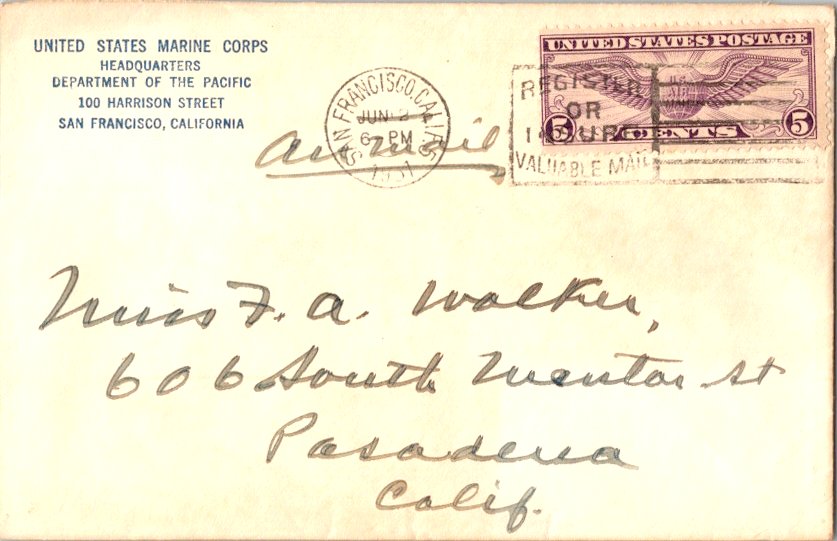 UNITED STATES MARINE CORPS
HEADQUARTERS
DEPARTMENT OF THE PACIFIC
100 HARRISON STREET
SAN FRANCISCO, CALIFORNIA
SAN FRANCISCO, CALIF.
JUN 2
6 PM
1931
Air mail
REGISTER
OR
INSURE
VALUABLE MAIL
UNITED STATES POSTAGE
5 CENTS 5
Miss F. A. Walker,
606 South Mentor St
Pasadena
Calif.